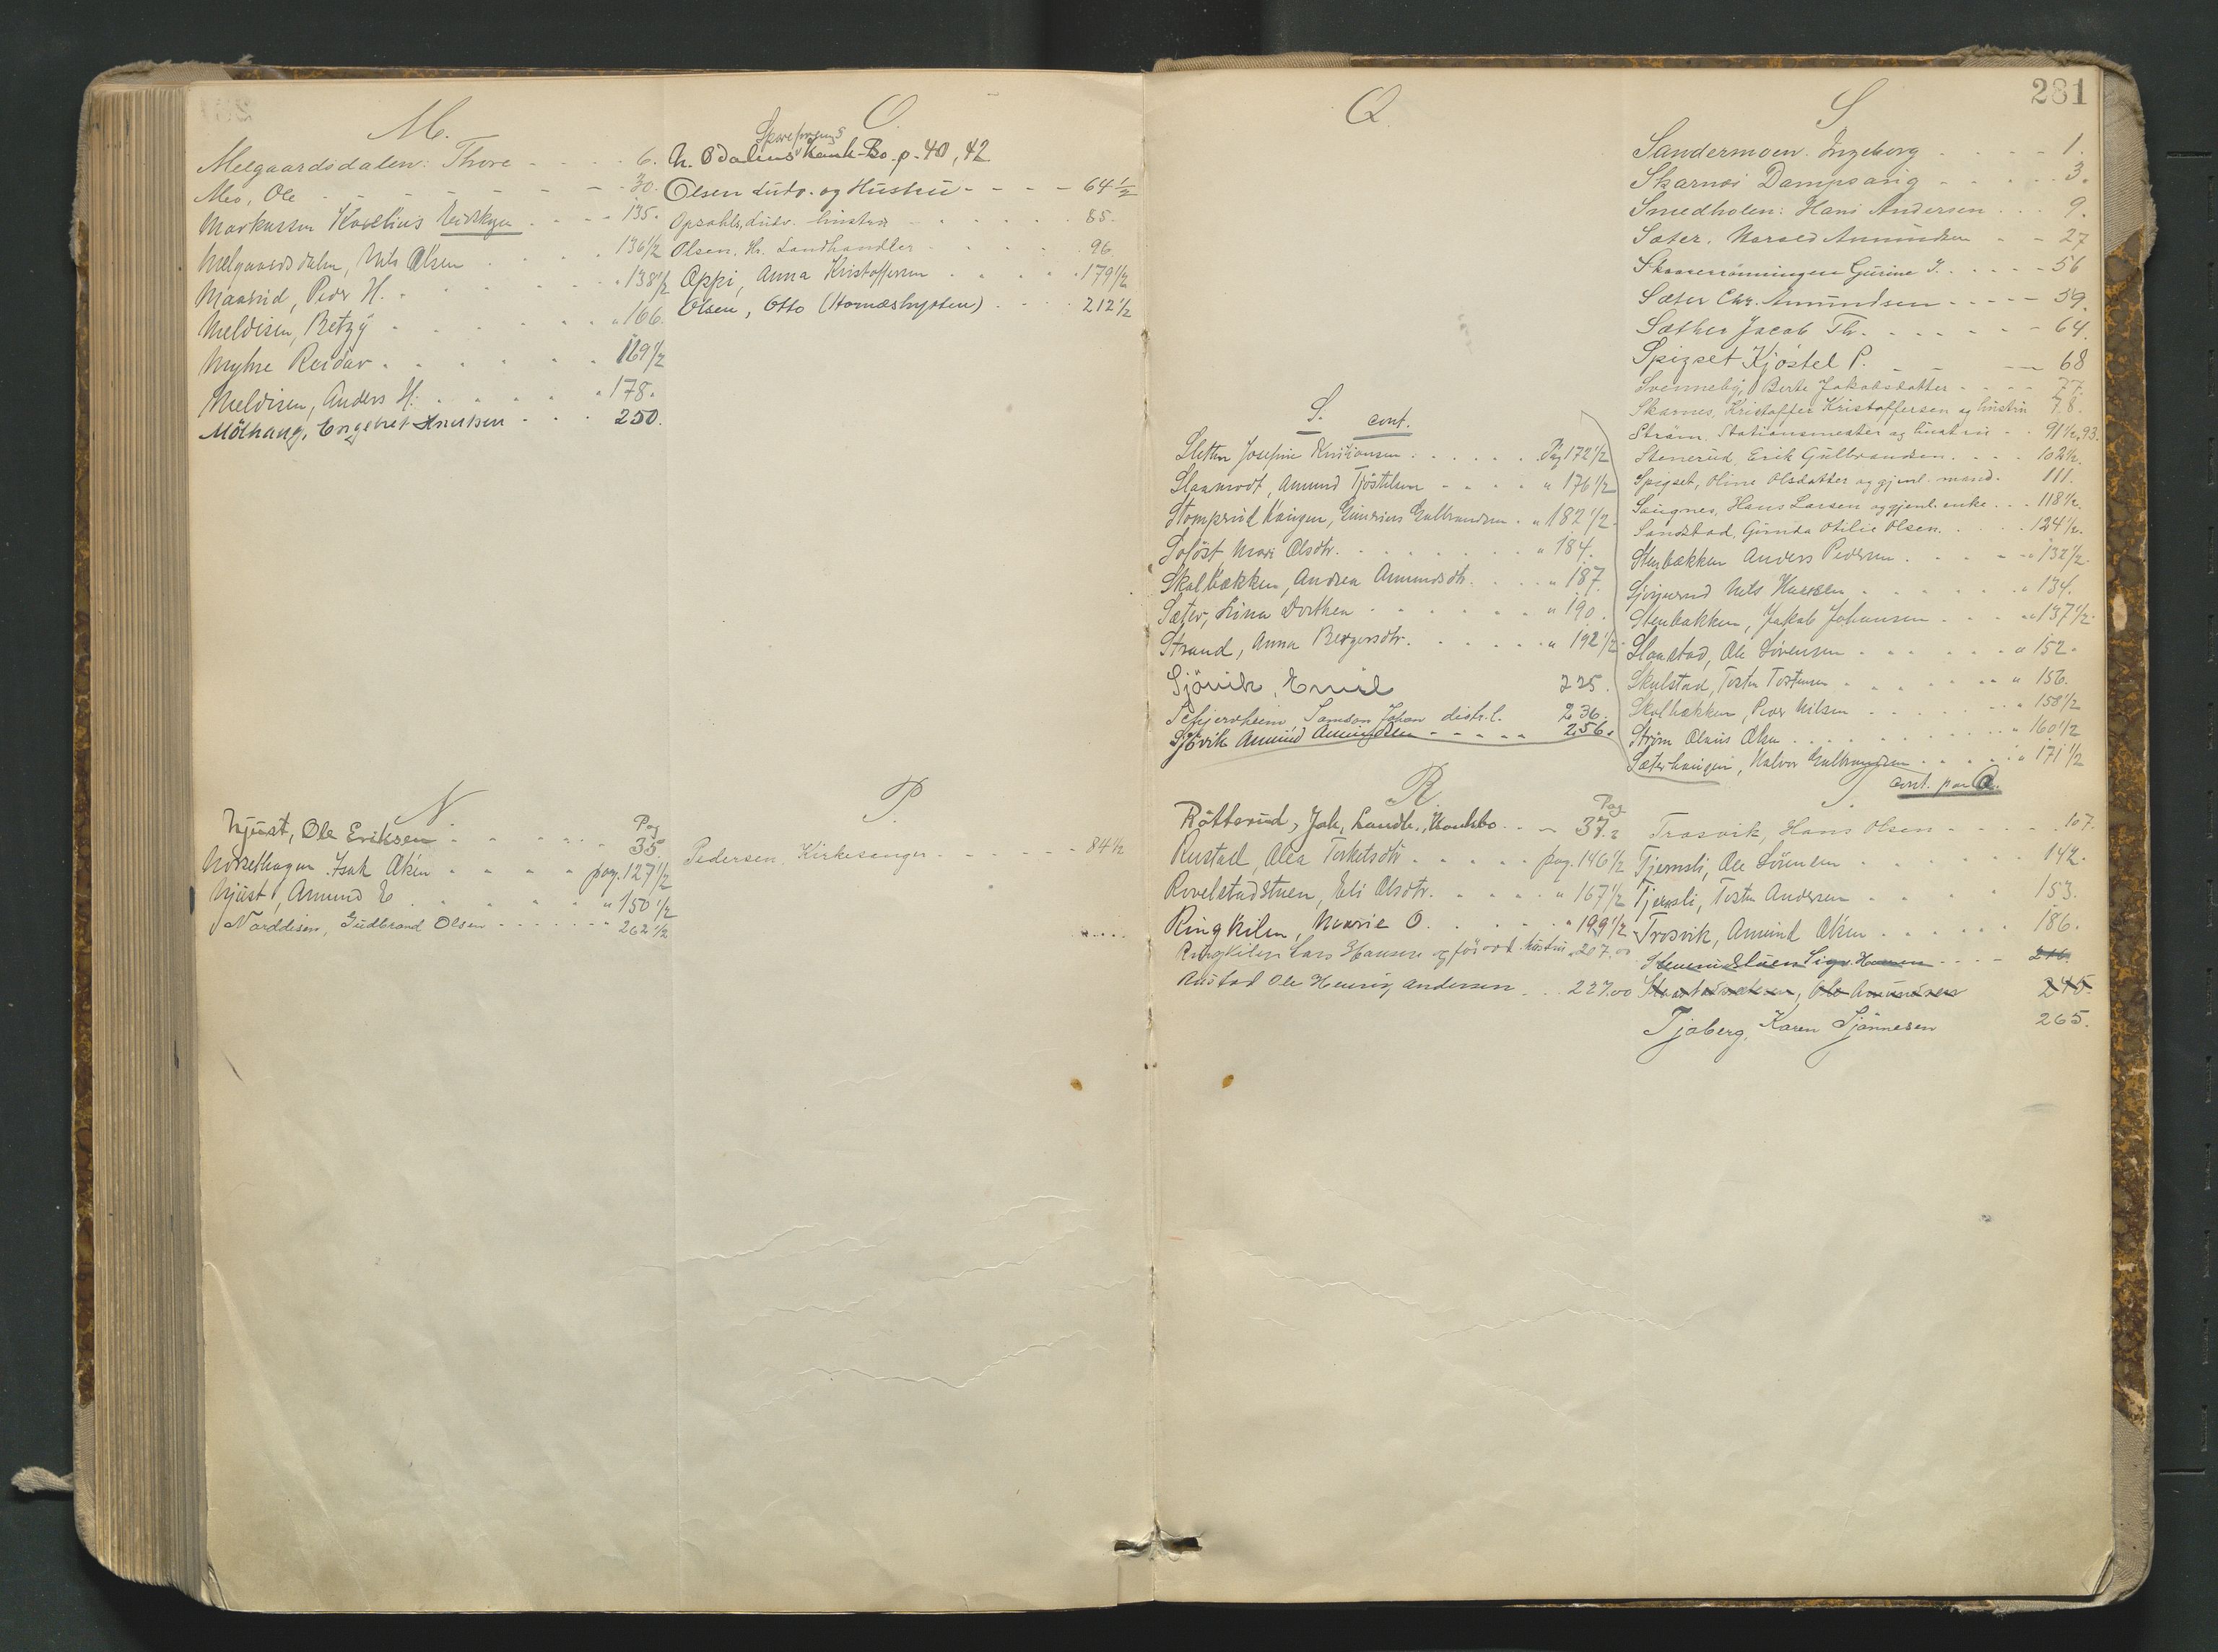 M.
Melgaardsdalen: Thore - - - - 6.
Mes, Ole - - - - 30.
Markussen 135.
Melgaardsdalen, Nils Olsen 136 1/2
Maarud, Peder H. 138 1/2
Meldisen, Betzy 166.
Myhre Reidar 169 1/2
Meldisen, Anders H. 178.
Mölhaug, Engebret Knutsen 250.
N.
Pag
Njust, Ole Eriksen 35
Isak pag. 127 1/2
Njust, Amund E 150 1/2
Norddisen, Gudbrand Olsen 262 1/2
O.
N. Odalens p. 40, 42
Olsen Ludv. og Hustru - - - - 64 1/2
Opsahl, Ludv. hustru 85.
Olsen, Kr. Landhandler 96
Oppi, Anna Kristoffersen 179 1/2
Olsen, Otto (Hornæshytten) 212 1/2
P.
Pedersen, Kirkesanger 84 1/2
Q.
S. cont.
Sletten Josefine Kristiansen Pag 172 1/2
Slaamodt, Amund Tjöstelsen " 176 1/2
Stomperud Gulbrandsen " 182 1/2
Solöst Mari Olsdtr. " 184.
Skolbækken, Andrea Amundsdtr. " 187.
Sæter, Lina Dorthea " 190.
Strand, Anna Bergersdtr. " 192 1/2
Sjövik, Emil 225.
Samson Johan distr.l. 236.
Sjövik Amund Amundsen 256.
R.
Pag
Rötterud, Joh, Landh., Konkbo. 37.
Rustad, Olea Torkelsdtr pag. 146 1/2
Rovelstadstuen, Eli Olsdtr. " 167 1/2
Ringkilen, Maarie O. " 199 1/2
Ringkilen Lars Hansen og hustru " 207.
Rustad Ole Henrik Andersen 227.00
281
S
Sandermoen. Ingeborg 1.
Skarnæs Dampsaug 3.
Smedholen: Hans Andersen 9.
Sæter. Harald Amundsen 27
Gurine J. 56
Sæter Chr. Amundsen 59.
Sæther Jacob Th. 64.
Spigset Kjöstel P. 68
Svenneby, Berte Jakobsdatter 77.
Skarnes, Kristoffer Kristoffersen og hustru 78.
Ström, Stationsmester og hustru 91 1/2, 93.
Stenerud, Erik Gulbrandsen 102 1/2.
Spigset, Oline Olsdatter og gjenl. mand. 111.
Saugnes, Hans Larsen og gjenl. enke 118 1/2.
Sandstad, Gunda Otilie Olsen. 124 1/2.
Stenbækken Anders Pedersen 132 1/2.
Nils Hansen " 134.
Stenbækken, Jakob Johansen " 137 1/2.
Slaastad, Ole Sörensen " 152.
Skulstad, Tosten Tostensen " 156.
Skolbækken, Peder Nilsen " 158 1/2
Ström Olaus Olsen " 160 1/2
Sæterhaugen, Halvor Gulbrandsen " 171 1/2
cont. paa Q.
T.
Trosvik, Hans Olsen 107.
Tjernsli, Ole Sörensen 142.
Tjernsli, Tosten Andersen 153.
Trosvik, Amund Olsen 186.
216.
Ole Amundsen 245.
Tjaberg, Karen Tjönnesen 265.